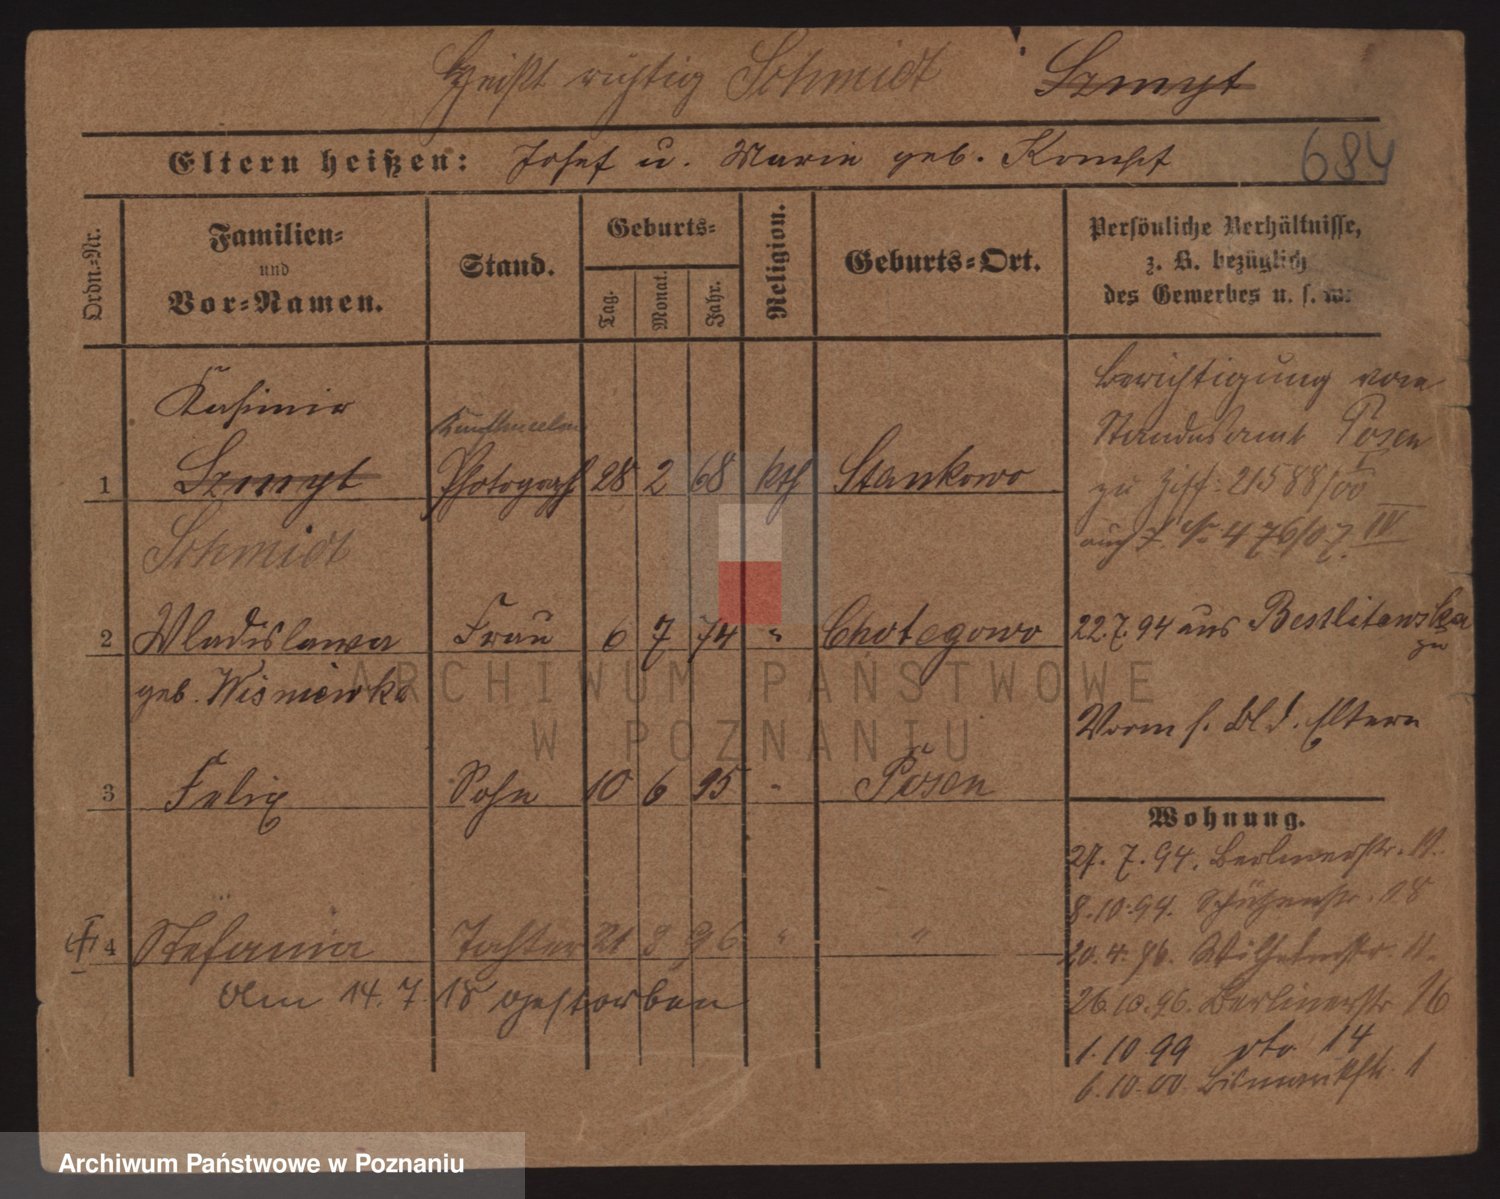 Heißt richtig Schmidt Szmyt
Eltern heißen: Josef u. Marie geb. Kompf
684
Ordn.-Nr.
Familien-
und
Vor-Namen.
Stand.
Geburts-
Tag.
Monat.
Jahr.
Religion.
Geburts-Ort.
Persönliche Verhältnisse,
z. B. bezüglich
des Gewerbes u. s. w.
Kasimir
1 Szmyt Photograph 28 2 68 kth Stankowo
Schmidt
Berichtigung vom
Standesamt Posen
zu Ziff: 21588/00
476/07. IV
2 Wladislawa Frau 6 7 74 " Chotegowo
geb. Wisniewka
22.7.94 aus Bestlitewska
zu
Eltern
3 Felix Sohn 10 6 95 - Posen
4 Stefania Tochter 21 8 96 " "
Am 14.7.18 gestorben
Wohnung.
27.7.94. Berlinerstr. 11.
8.10.94. Schützenstr. 18
20.4.96. Wilhelmstr. 11.
26.10.96. Berlinerstr 16
1.10.99 dto 14
6.10.00. Bismarckstr. 1
ARCHIWUM PAŃSTWOWE
W POZNANIU
Archiwum Państwowe w Poznaniu